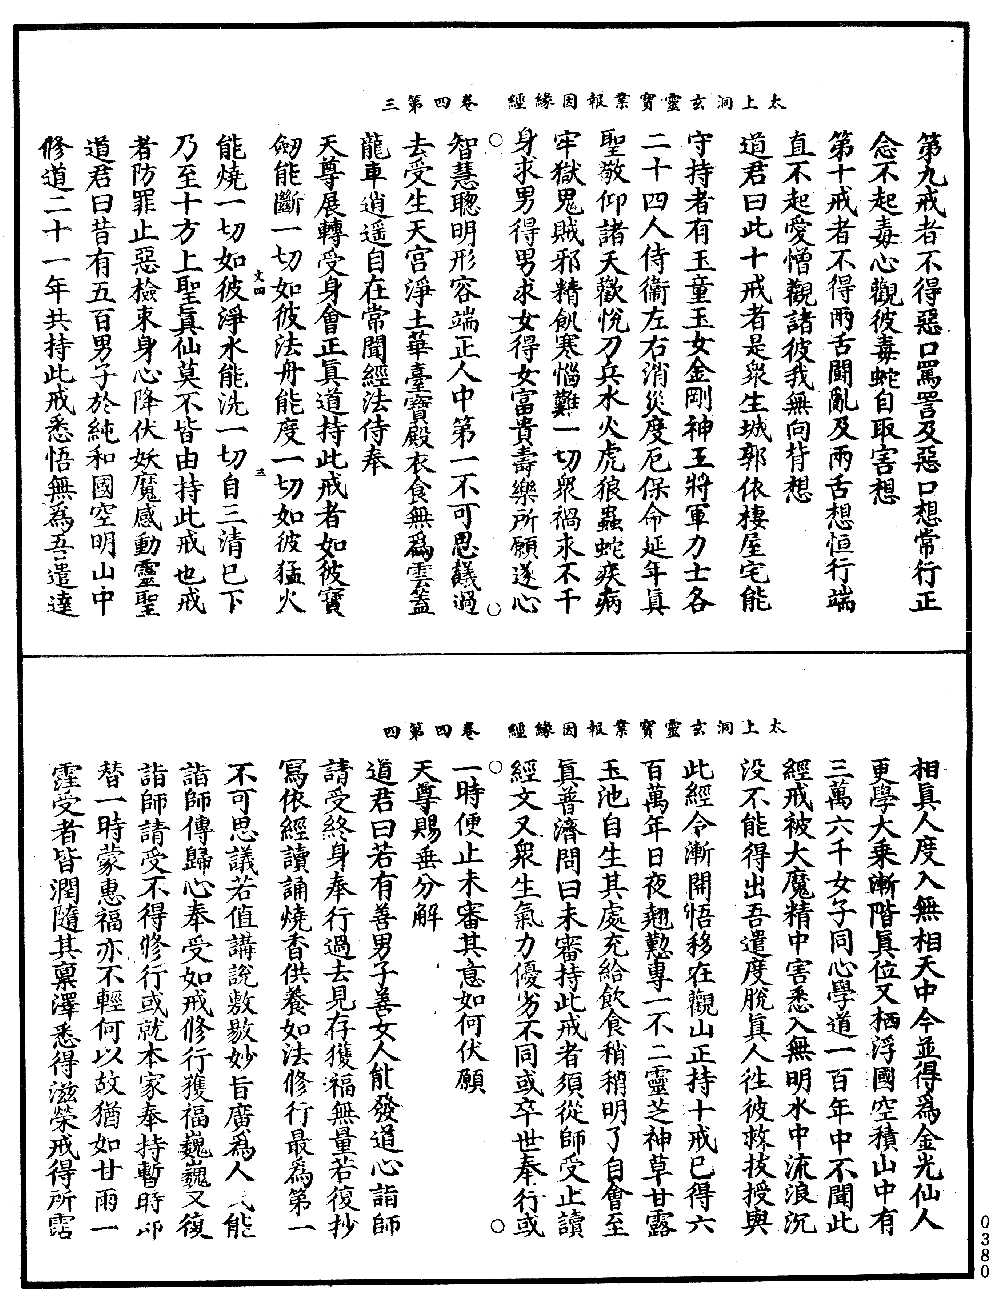 太上洞玄靈寶業報因緣經　卷四第三
第九戒者不得惡口罵詈及惡口想常行正
念不起毒心觀彼毒蛇自取害想
第十戒者不得兩舌鬭亂及兩舌想恒行端
直不起愛憎觀諸彼我無向背想
道君曰此十戒者是衆生城郭依棲屋宅能
守持者有玉童玉女金剛神王將軍力士各
二十四人侍衞左右消災度厄保命延年眞
聖敬仰諸天歡悅刀兵水火虎狼蟲蛇疾病
牢獄鬼賊邪精飢寒惱難一切衆禍求不干
身求男得男求女得女富貴壽樂所願遂心
智慧聰明形容端正人中第一不可思議過
去受生天宮淨土華臺寶殿衣食無爲雲蓋
龍車逍遥自在常聞經法侍奉
天尊展轉受身會正眞道持此戒者如彼寶
劒能斷一切如彼法舟能度一切如彼猛火
文四　三
能燒一切如彼淨水能洗一切自三清已下
乃至十方上聖眞仙莫不皆由持此戒也戒
者防罪止惡檢束身心降伏妖魔感動靈聖
道君曰昔有五百男子於純和國空明山中
修道二十一年共持此戒悉悟無爲吾遣達
太上洞玄靈寶業報因緣經　卷四第四
相眞人度入無相天中今並得爲金光仙人
更學大乘漸階眞位又栖浮國空積山中有
三萬六千女子同心學道一百年中不聞此
經戒被大魔精中害悉入無明水中流浪沉
没不能得出吾遣度脫眞人往彼救拔授與
此經令漸開悟移在觀山正持十戒已得六
百萬年日夜翹懃專一不二靈芝神草甘露
玉池自生其處充給飲食稍稍明了自會至
眞善濟問曰未審持此戒者須從師受止讀
經文又衆生氣力優劣不同或卒世奉行或
一時便止未審其意如何伏願
天尊賜垂分解
道君曰若有善男子善女人能發道心詣師
請受終身奉行過去見存獲福無量若復抄
寫依經讀誦燒香供養如法修行最爲第一
不可思議若值講說敷敭妙旨廣爲人 能
詣師傳歸心奉受如戒修行獲福巍巍又復
詣師請受不得修行或就本家奉持暫時卽
替一時蒙惠福亦不輕何以故猶如甘雨一
霔受者皆潤隨其禀澤悉得滋榮戒得所霑
0380